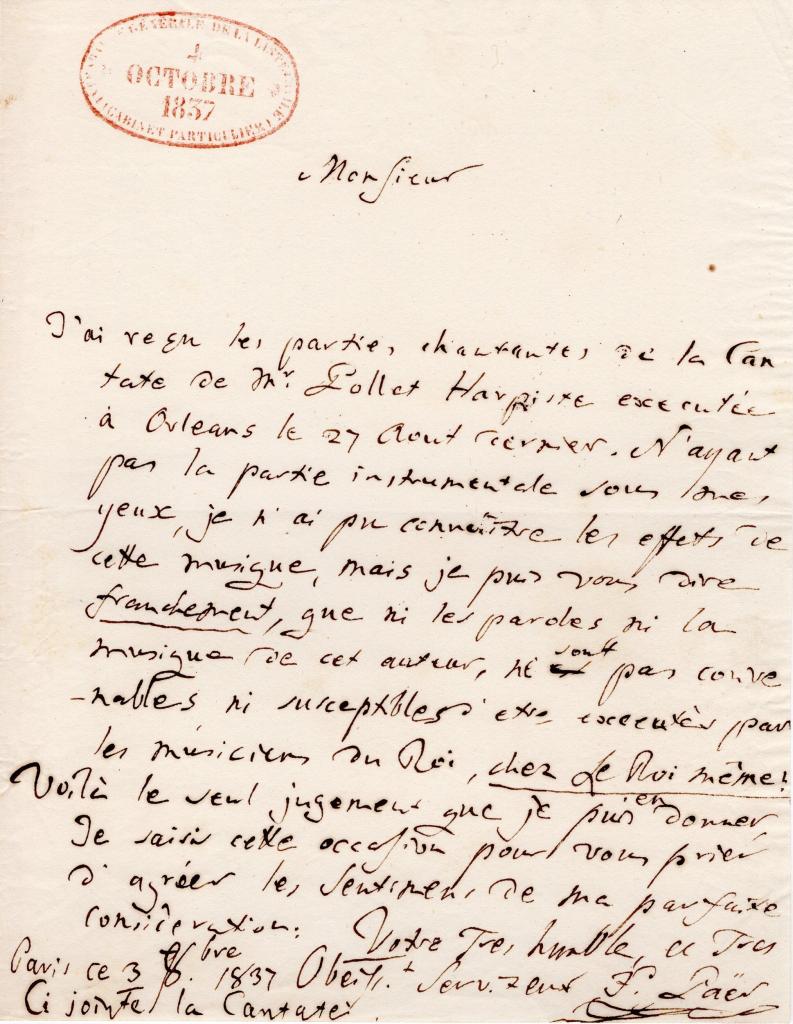 GÉNÉRALE DE LA LISTE CIVILE
4
OCTOBRE
1837
(CABINET PARTICULIER)
Monsieur
J'ai reçu les parties chantantes de la Can
tate de Mr. Pollet Harpiste executée
à Orleans le 27 Aout dernier. N'ayant
pas la partie instrumentale sous mes
yeux, je n'ai pu connaître les effets de
cette musique, mais je puis vous dire
franchement, que ni les paroles ni la
musique de cet auteur, ne sont pas conve
-nables ni susceptibles d'etre executés par
les musiciens du Roi, chez Le Roi même!
Voilà le seul jugement que je puis en donner,
Je saisis cette occasion pour vous prier
d'agréer les sentimens de ma parfaite
consideration.
Votre Tres humble, et Tres
Paris ce 3 8.bre 1837 Obeiss.t Serviteur F. Paër
Ci jointe la Cantate.